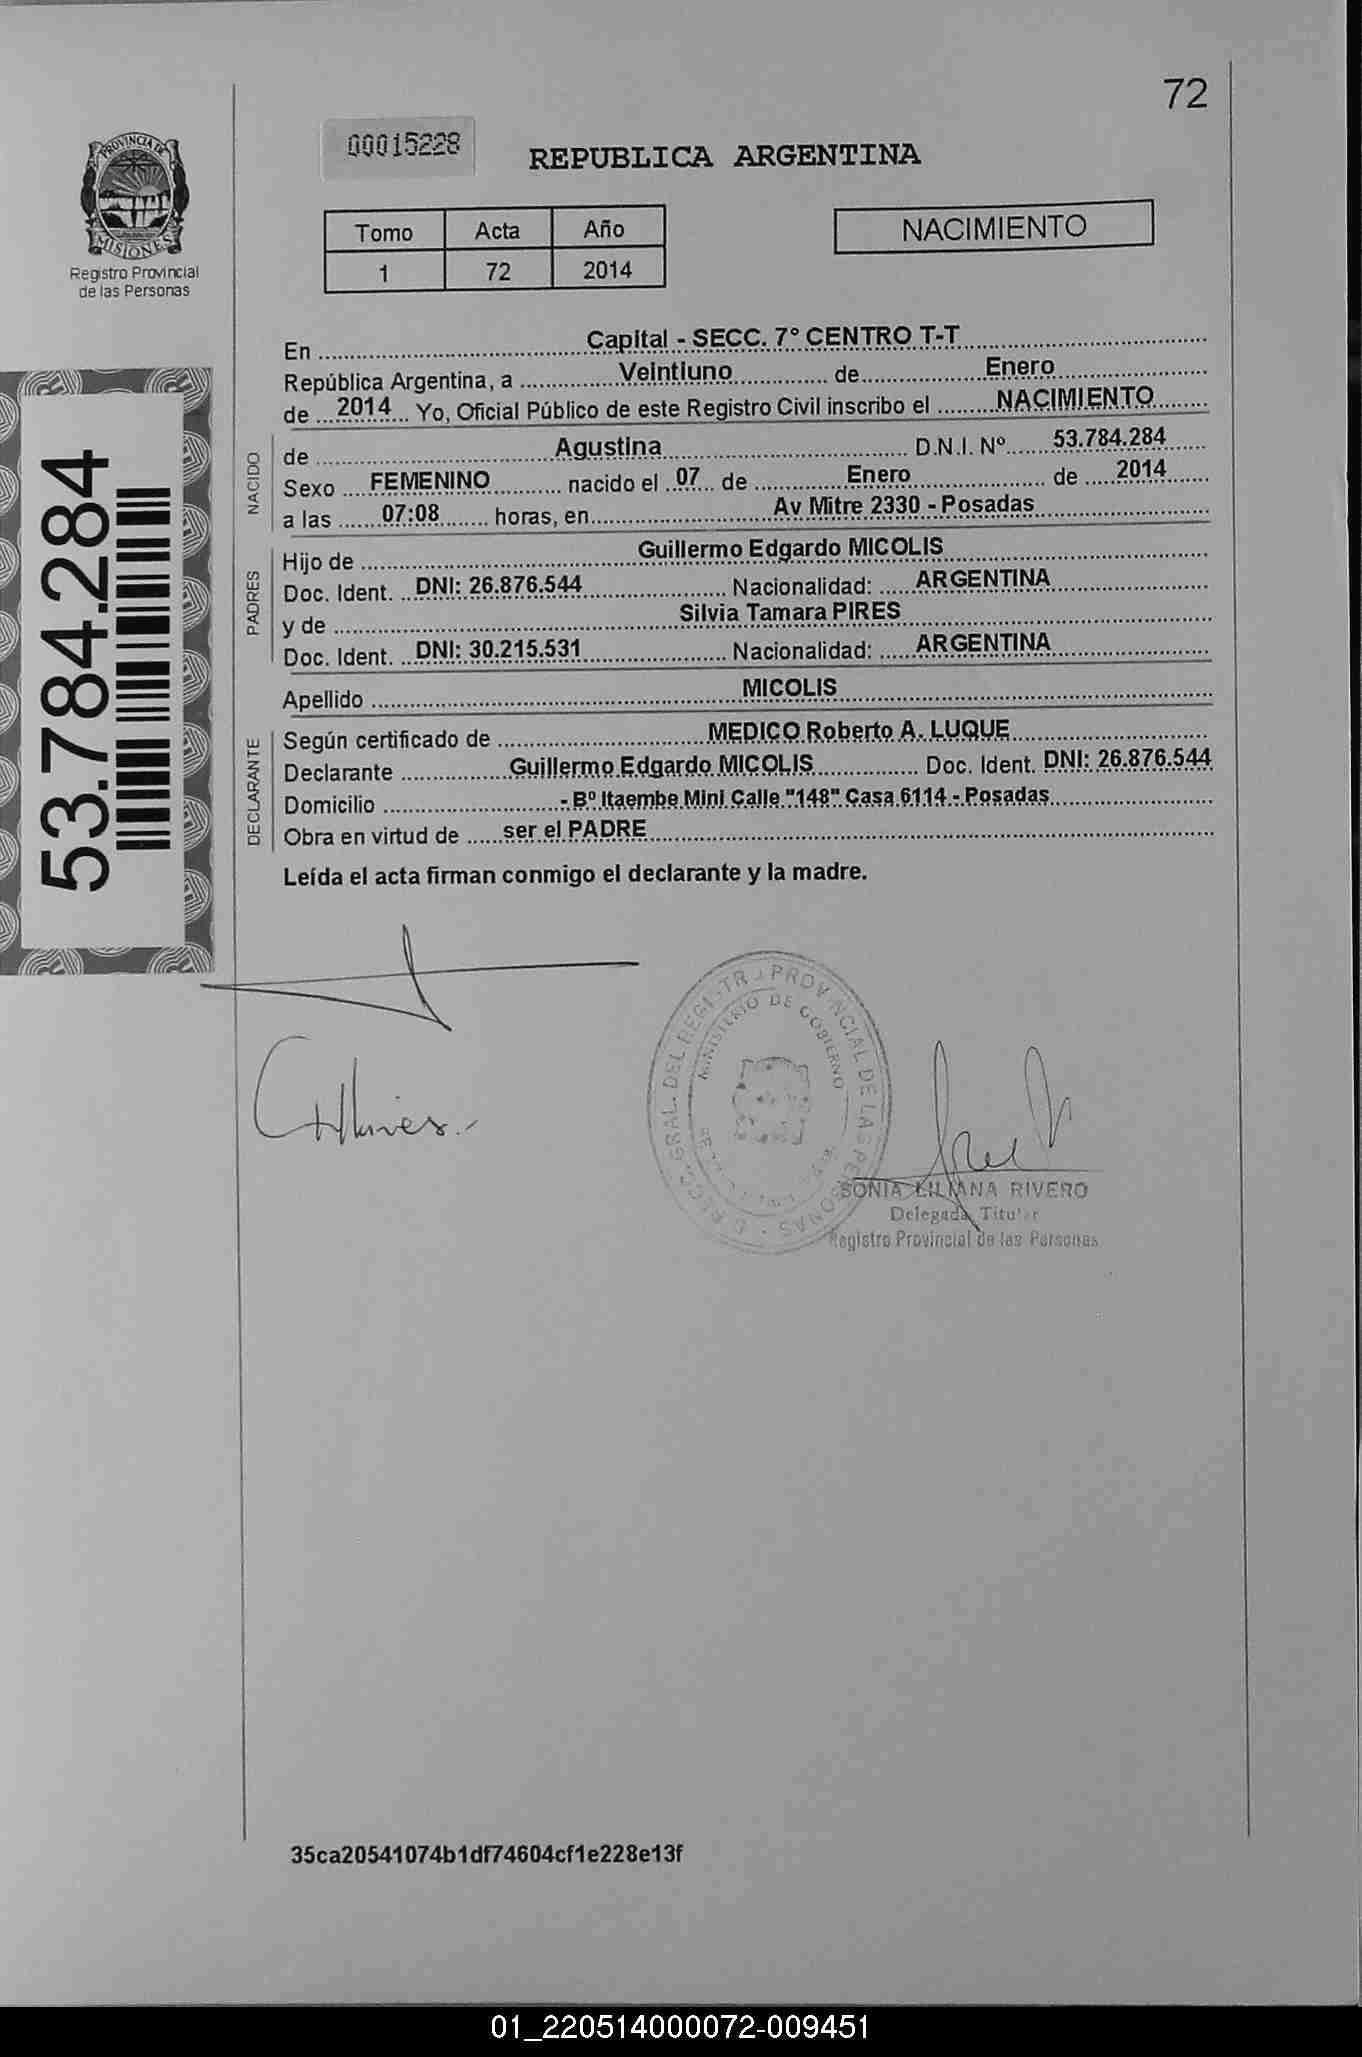 72
PROVINCIA DE
MISIONES
Registro Provincial
de las Personas
00015228
REPUBLICA ARGENTINA
Tomo Acta Año
1 72 2014
NACIMIENTO
53.784.284
En Capital - SECC. 7° CENTRO T-T
República Argentina, a Veintiuno de Enero
de 2014 Yo, Oficial Público de este Registro Civil inscribo el NACIMIENTO
NACIDO
de Agustina D.N.I. Nº 53.784.284
Sexo FEMENINO nacido el 07 de Enero de 2014
a las 07:08 horas, en Av Mitre 2330 - Posadas
PADRES
Hijo de Guillermo Edgardo MICOLIS
Doc. Ident. DNI: 26.876.544 Nacionalidad: ARGENTINA
y de Silvia Tamara PIRES
Doc. Ident. DNI: 30.215.531 Nacionalidad: ARGENTINA
Apellido MICOLIS
DECLARANTE
Según certificado de MEDICO Roberto A. LUQUE
Declarante Guillermo Edgardo MICOLIS Doc. Ident. DNI: 26.876.544
Domicilio - Bº Itaembe Mini Calle "148" Casa 6114 - Posadas
Obra en virtud de ser el PADRE
Leída el acta firman conmigo el declarante y la madre.
PROVINCIAL DE LAS PERSONAS
MINISTERIO DE GOBIERNO
SONIA LILIANA RIVERO
Delegada Titular
Registro Provincial de las Personas
35ca20541074b1df74604cf1e228e13f
01_220514000072-009451